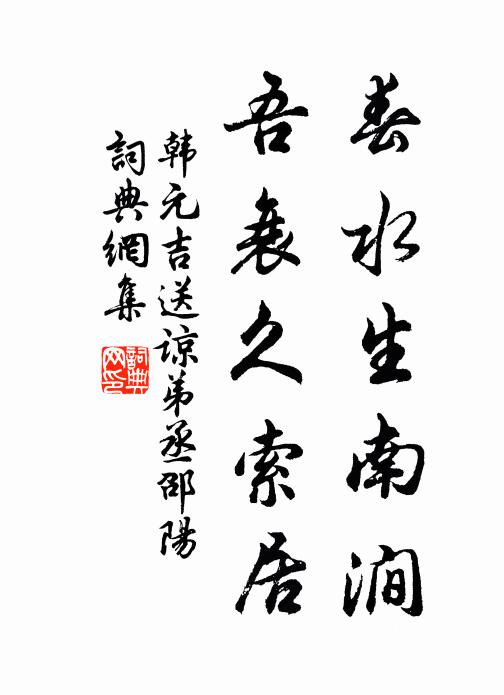 春水生南澗
吾衰久索居
韩元吉送諒弟丞邵陽
詞典網集
詞典网印